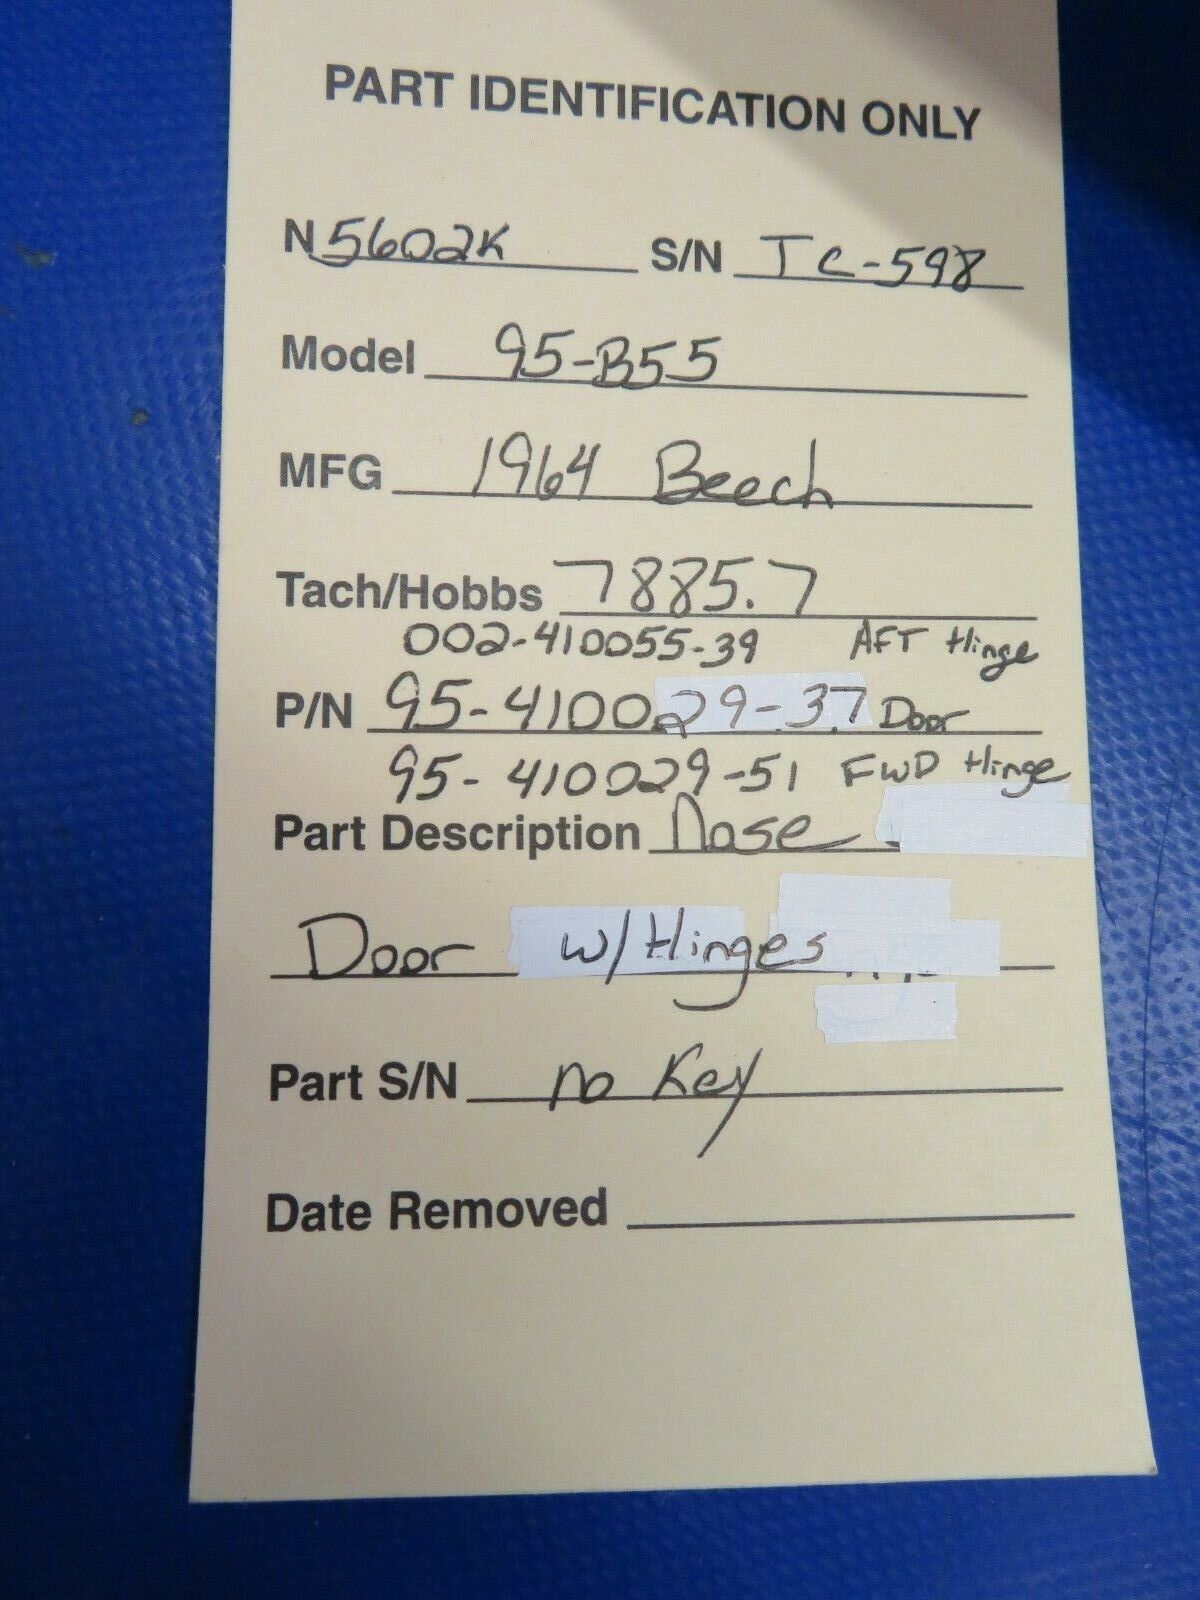 PART IDENTIFICATION ONLY
N 5602K S/N TC-598
Model 95-B55
MFG 1964 Beech
Tach/Hobbs 7885.7
002-410055-39 AFT Hinge
P/N 95-410029-37 Door
95-410029-51 FWD Hinge
Part Description Nose
Door w/ Hinges
Part S/N no Key
Date Removed